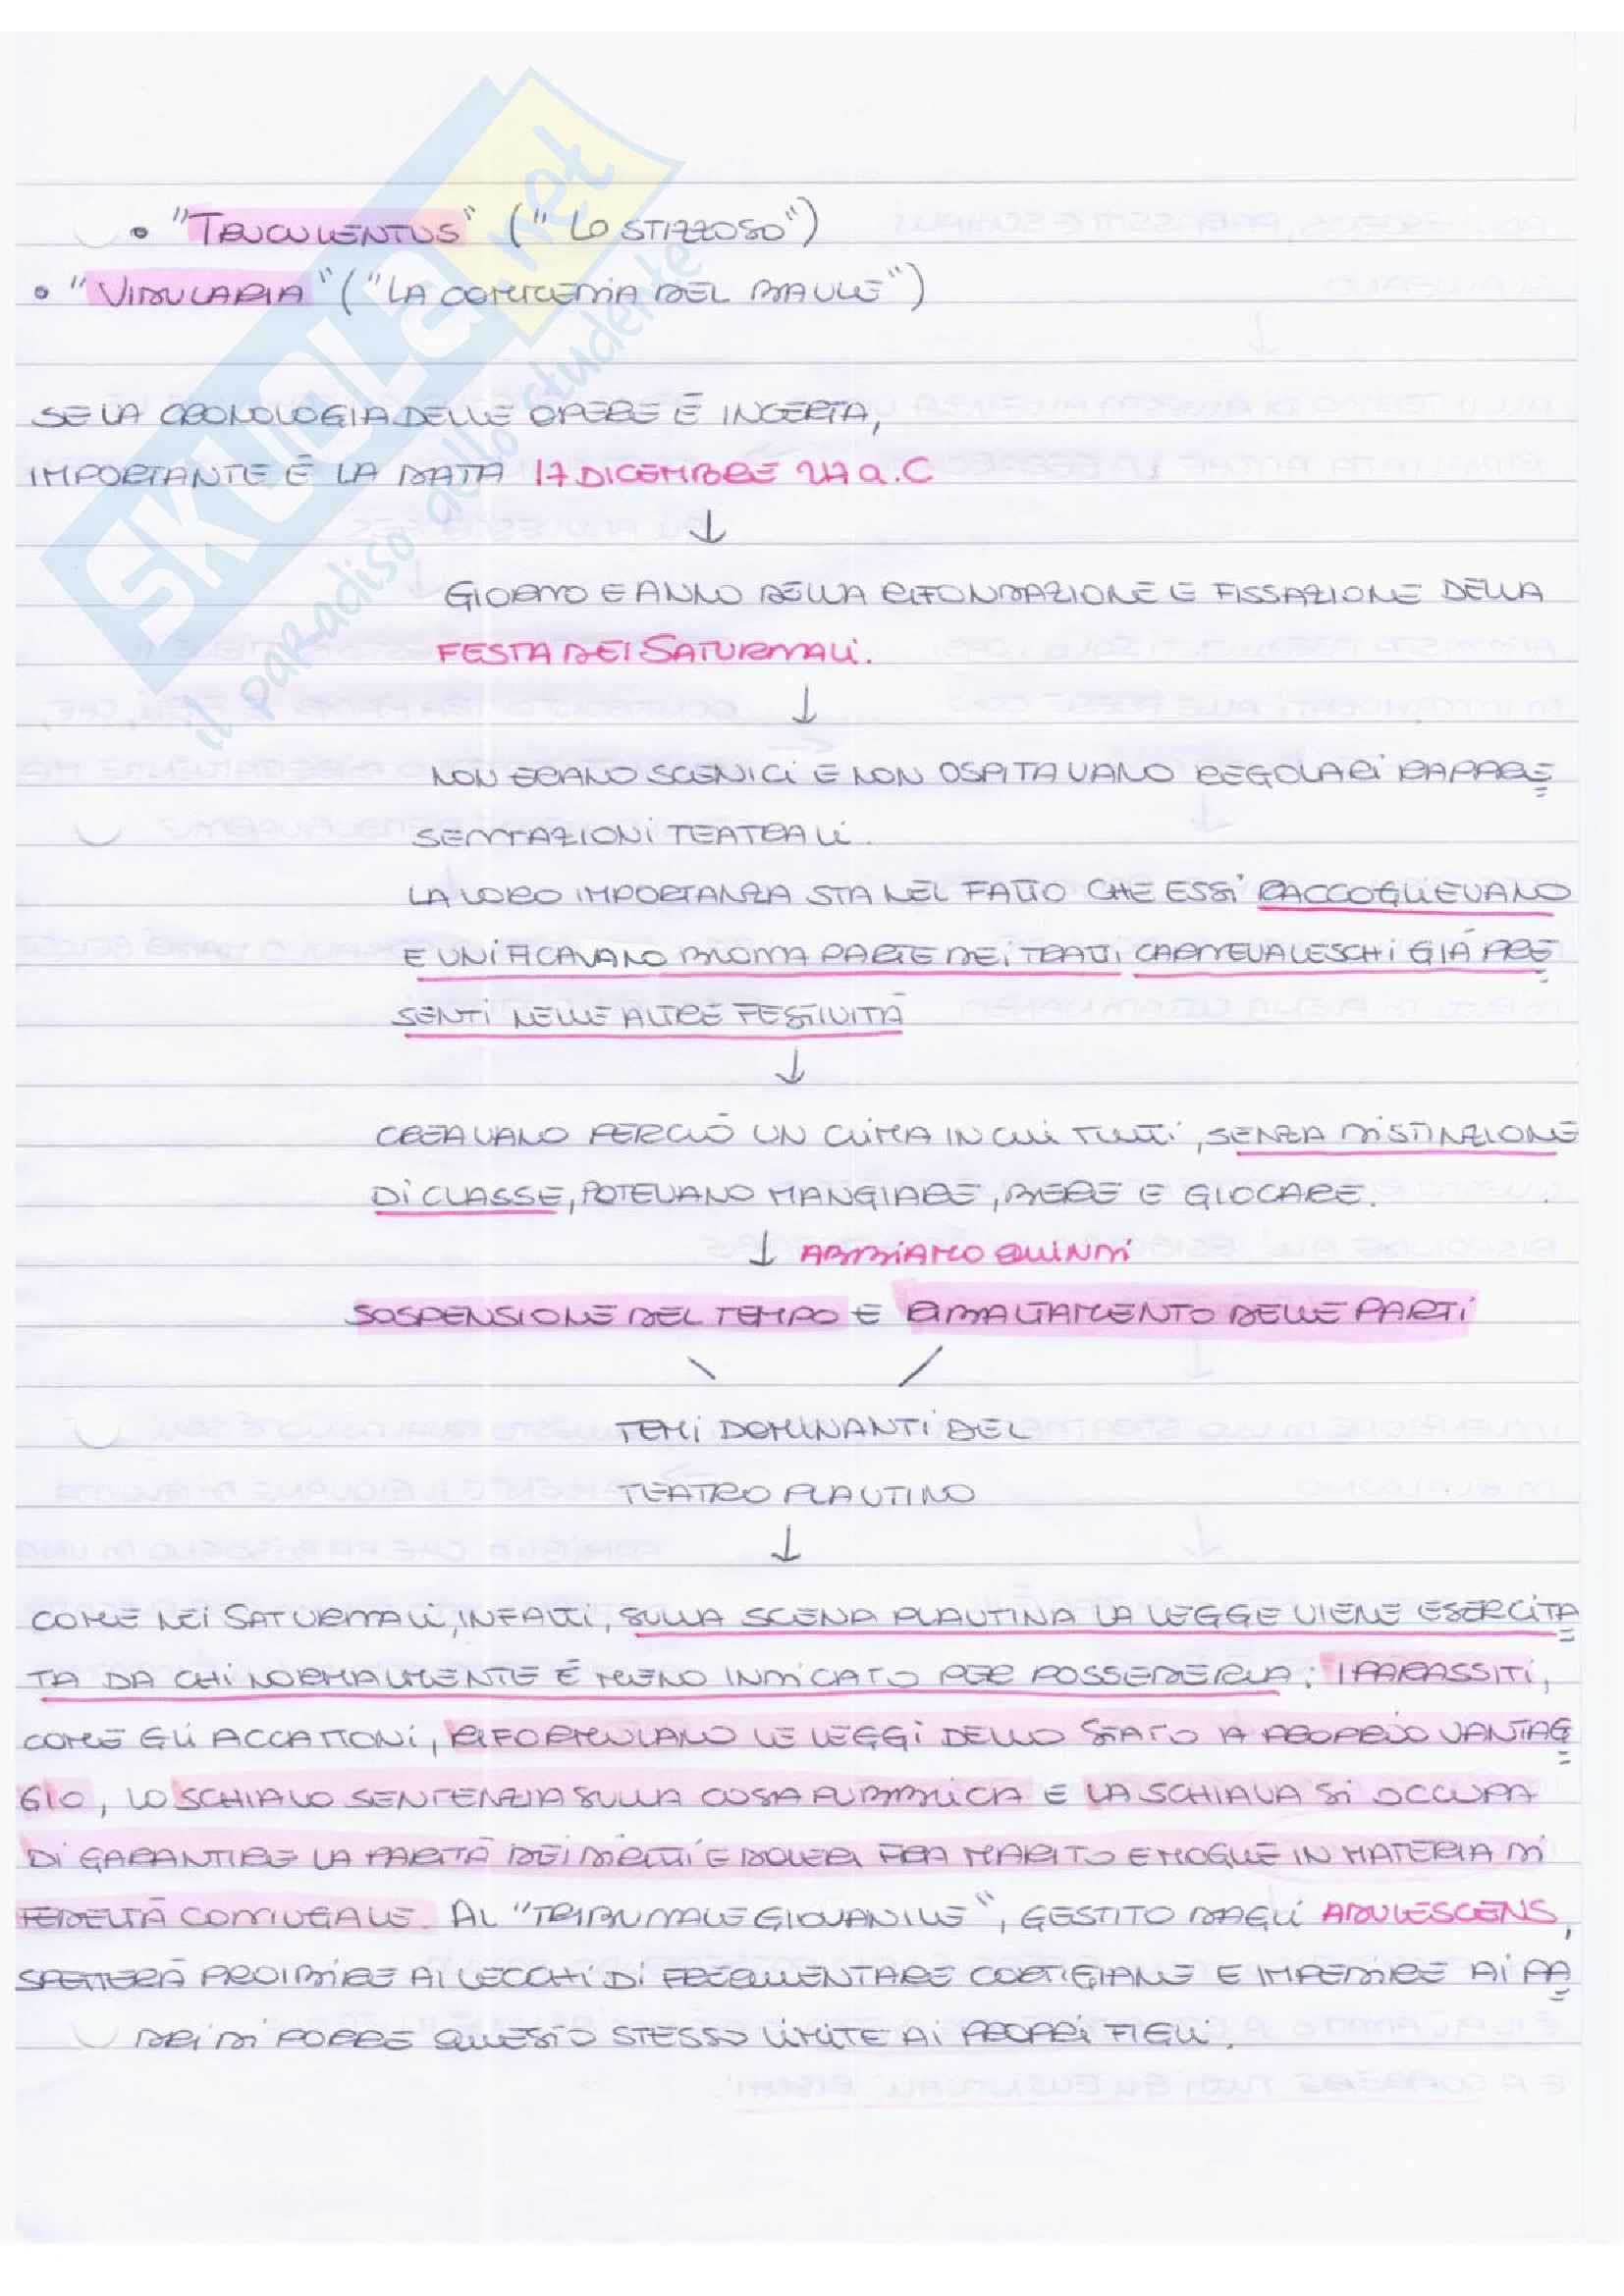 • "TRUCULENTUS" ("LO STIZZOSO")
• "VIDULARIA" ("LA COMMEDIA DEL BAULE")
SE LA CRONOLOGIA DELLE OPERE È INCERTA,
IMPORTANTE È LA DATA 17 DICEMBRE 217 a.C
↓
GIORNO E ANNO DELLA RIFONDAZIONE E FISSAZIONE DELLA
FESTA DEI SATURNALI.
↓
NON ERANO SCENICI E NON OSPITAVANO REGOLARI RAPPRE=
SENTAZIONI TEATRALI.
LA LORO IMPORTANZA STA NEL FATTO CHE ESSI RACCOGLIEVANO
E UNIFICAVANO BUONA PARTE DEI TRATTI CARNEVALESCHI GIÀ PRE=
SENTI NELLE ALTRE FESTIVITÀ
↓
CREAVANO PERCIÒ UN CLIMA IN CUI TUTTI, SENZA DISTINZIONE
DI CLASSE, POTEVANO MANGIARE, BERE E GIOCARE.
↓ ABBIAMO QUINDI
SOSPENSIONE DEL TEMPO E RIBALTAMENTO DELLE PARTI
TEMI DOMINANTI DEL
TEATRO PLAUTINO
↓
COME NEI SATURNALI, INFATTI, SULLA SCENA PLAUTINA LA LEGGE VIENE ESERCITA=
TA DA CHI NORMALMENTE È MENO INDICATO PER POSSEDERLA: I PARASSITI,
COME GLI ACCATTONI, RIFORMULANO LE LEGGI DELLO STATO A PROPRIO VANTAG=
GIO, LO SCHIAVO SENTENZIA SULLA COSA PUBBLICA E LA SCHIAVA SI OCCUPA
DI GARANTIRE LA PARITÀ DEI DIRITTI E DOVERI FRA MARITO E MOGLIE IN MATERIA DI
FEDELTÀ CONIUGALE. AL "TRIBUNALE GIOVANILE", GESTITO DAGLI ADULESCENS,
SPETTERÀ PROIBIRE AI VECCHI DI FREQUENTARE CORTIGIANE E IMPEDIRE AI PA=
DRI DI PORRE QUESTO STESSO LIMITE AI PROPRI FIGLI.
SKUOLA.net
il paradiso dello studente